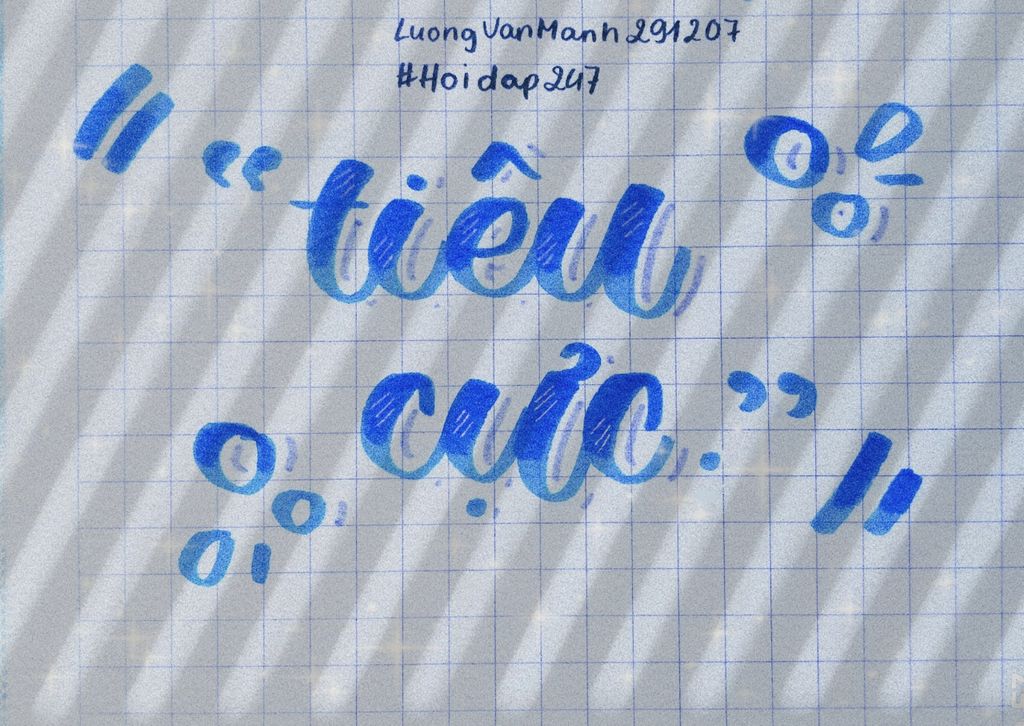 LuongVanManh291207
#Hoidap247
“tiêu
cực.”